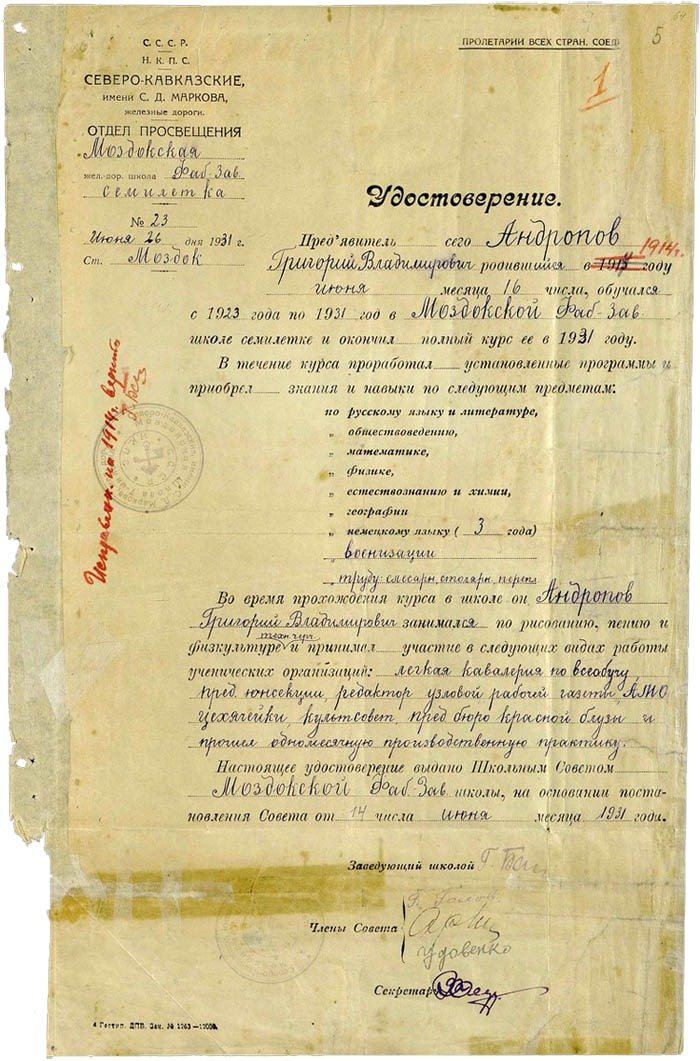 64
5
1
С. С. С. Р.
Н. К. П. С.
СЕВЕРО-КАВКАЗСКИЕ,
имени С. Д. МАРКОВА,
железные дороги.
ОТДЕЛ ПРОСВЕЩЕНИЯ
Моздокская
жел.-дор. школа Фаб-Зав.
семилетка
№ 23
Июня 26 дня 1931 г.
Ст. Моздок
ПРОЛЕТАРИИ ВСЕХ СТРАН, СОЕД
Удостоверение.
Пред'явитель сего Андропов
1914г.
Григорий Владимирович родившийся в году
июня месяца 16 числа, обучался
с 1923 года по 1931 год в Моздокской Фаб-Зав.
школе семилетке и окончил полный курс ее в 1931 году.
В течение курса проработал установленные программы и
приобрел знания и навыки по следующим предметам:
по русскому языку и литературе,
„ обществоведению,
„ математике,
„ физике,
„ естествознанию и химии,
„ географии
„ немецкому языку ( 3 года)
„ военизации
„ труду: слесарн, столярн, переп
Во время прохождения курса в школе он Андропов
Григорий Владимирович занимался по рисованию, пению и
физкультуре и принимал участие в следующих видах работы
ученических организаций: легкая кавалерия по всеобучу,
пред. юнсекции, редактор узловой рабочей газеты,
цехячейки, культсовет, пред бюро красной блузы и
прошел одномесячную производственную практику.
Настоящее удостоверение выдано Школьным Советом
Моздокской Фаб-Зав. школы, на основании поста-
новления Совета от 14 числа июня месяца 1931 года.
Заведующий школой
Члены Совета
Удовенко
Секретарь
Исправлен. на 1914г. верить
4 Гостип. ДПВ. Зак. № 1263—12000.